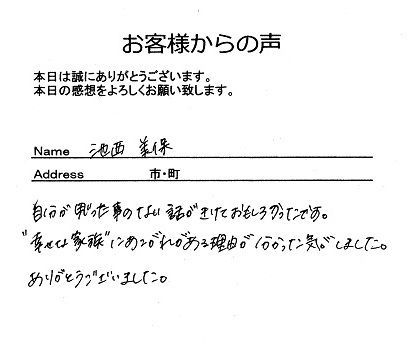 お客様からの声
本日は誠にありがとうございます。
本日の感想をよろしくお願い致します。
Name 池西 美保
Address 市・町
自分が思った事のない話がきけておもしろかったです。
"幸せな家族"にあこがれがある理由が分かった気がしました。
ありがとうございました。